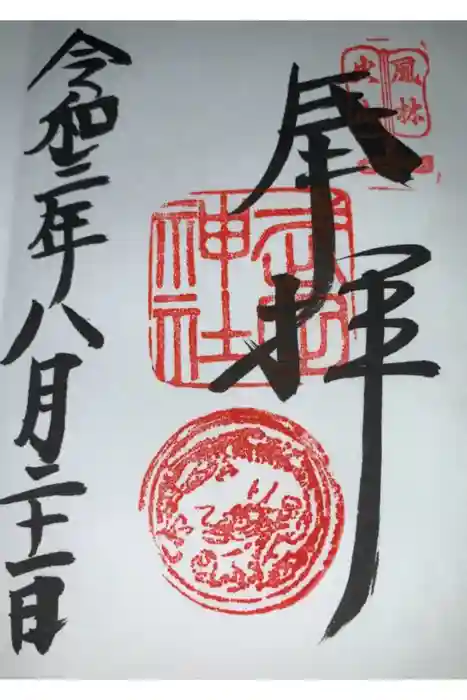 風林
火山
奉拝
神社
令和三年八月二十一日